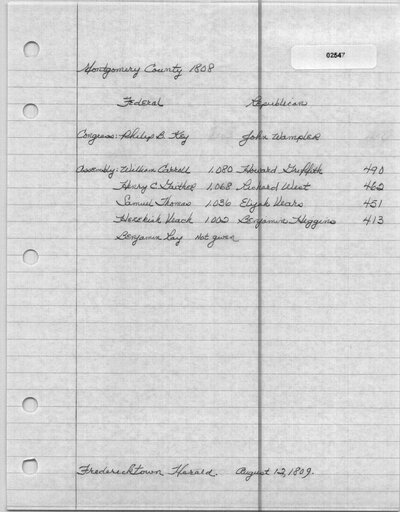 02547
Montgomery County 1808
Federal Republican
Congress: Philip B. Key John Wampler
Assembly: William Carroll 1.080 Howard Griffith 490
Henry C. Gaither 1.068 Richard West 462
Samuel Thomas 1.036 Elijah Viars 451
Hezekiah Veach 1.002 Benjamin Higgins 413
Benjamin Ray Not given
Fredericktown Herald. August 12, 1809.